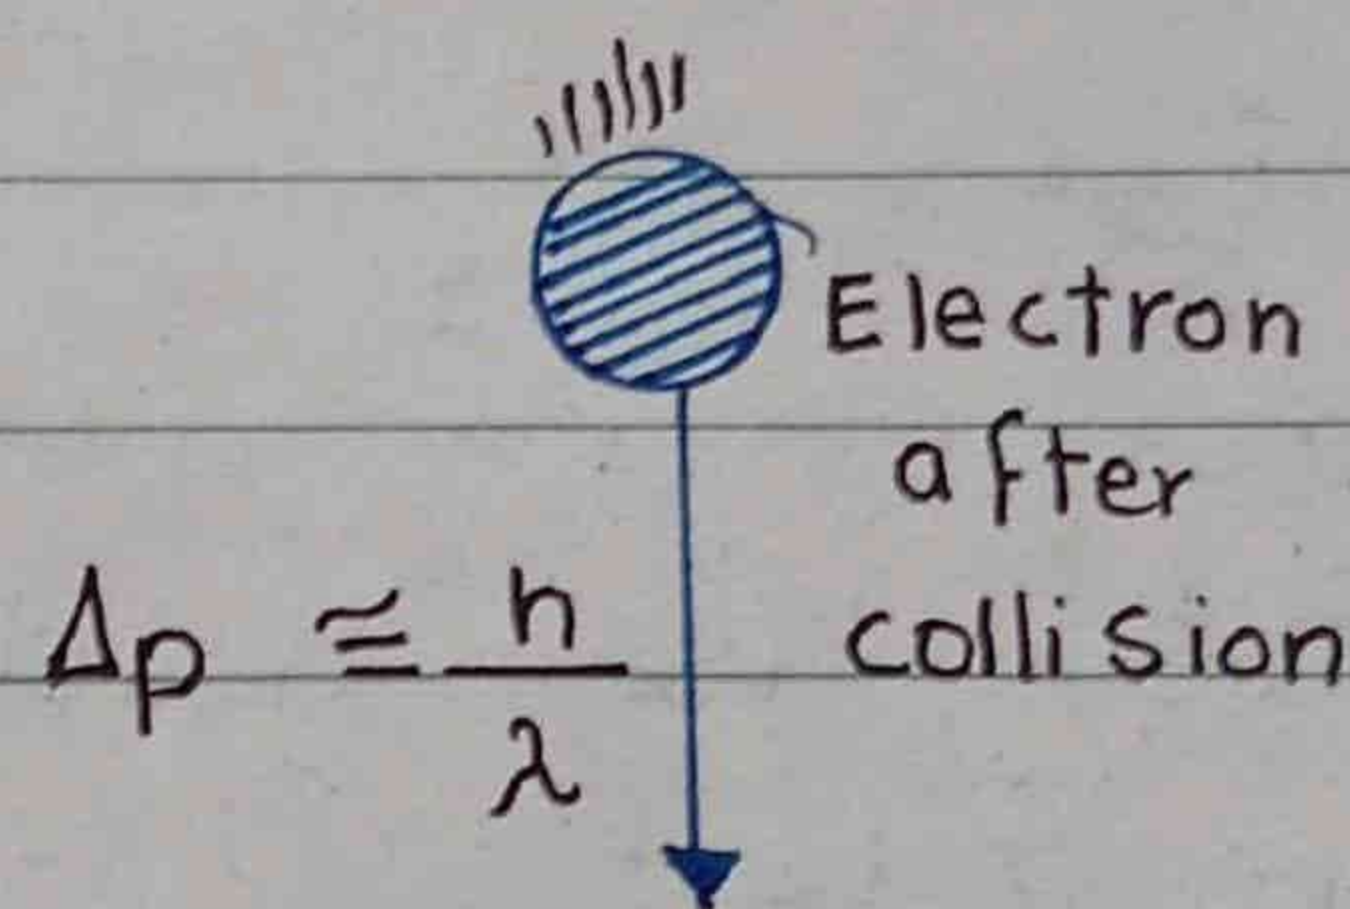 Electron
after
collision
Δp ≅ h/λ